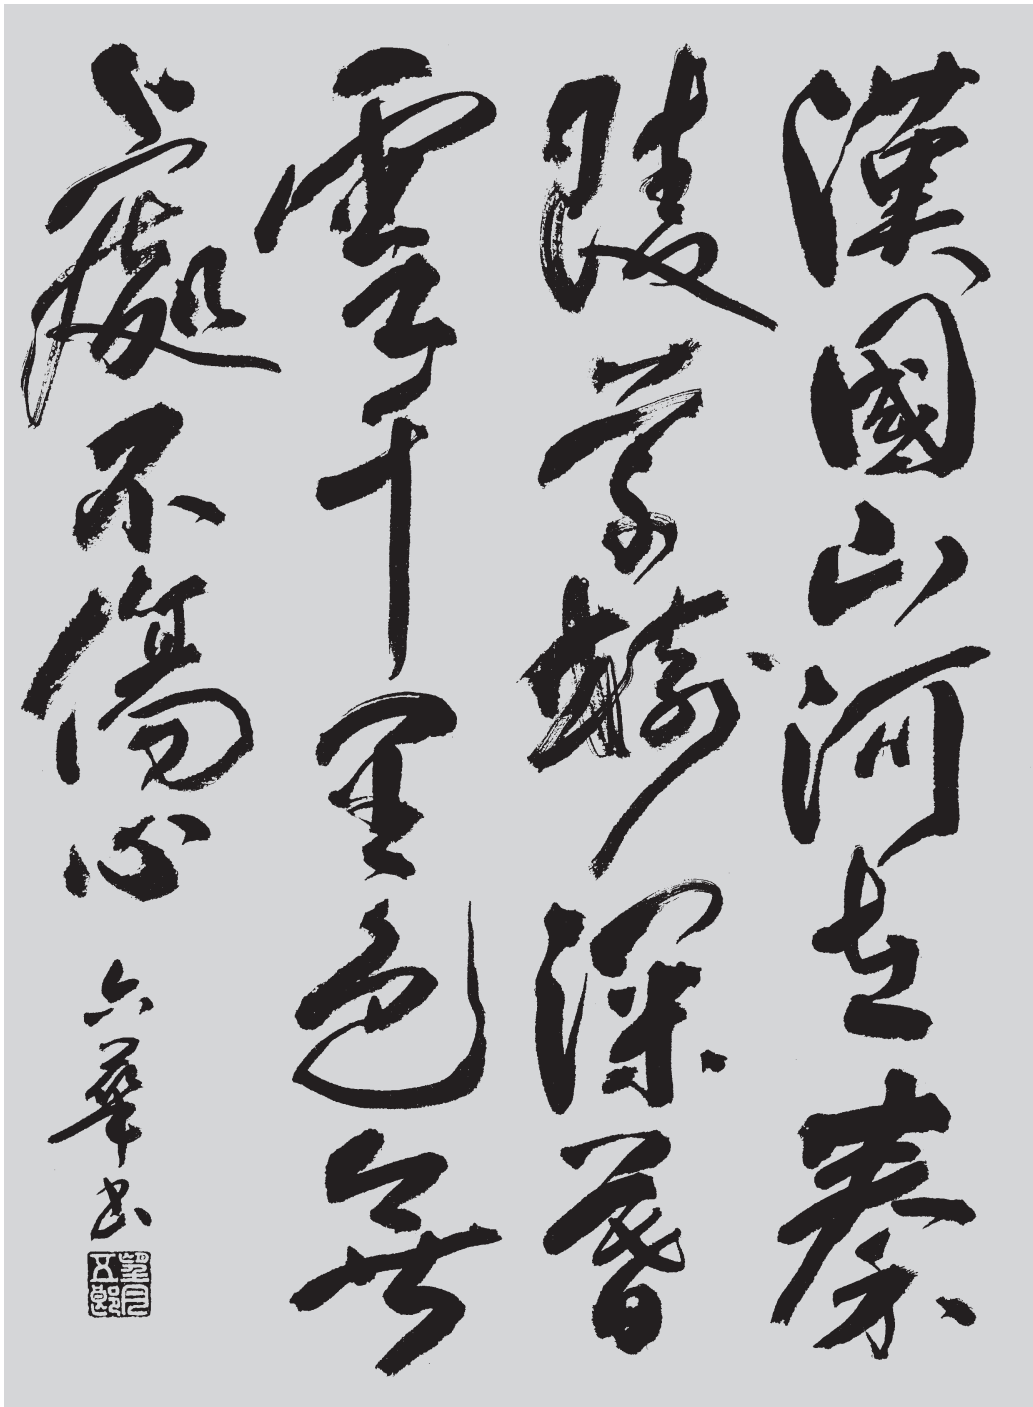 漢國山河在秦
陵草樹深暮
雲千里色無
處不傷心 六華書
望月
五郎